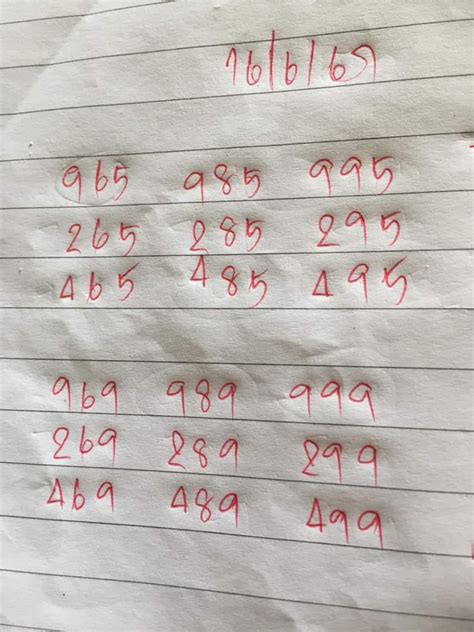 16/6/69
965 985 995
265 285 295
465 485 495
969 989 999
269 289 299
469 489 499